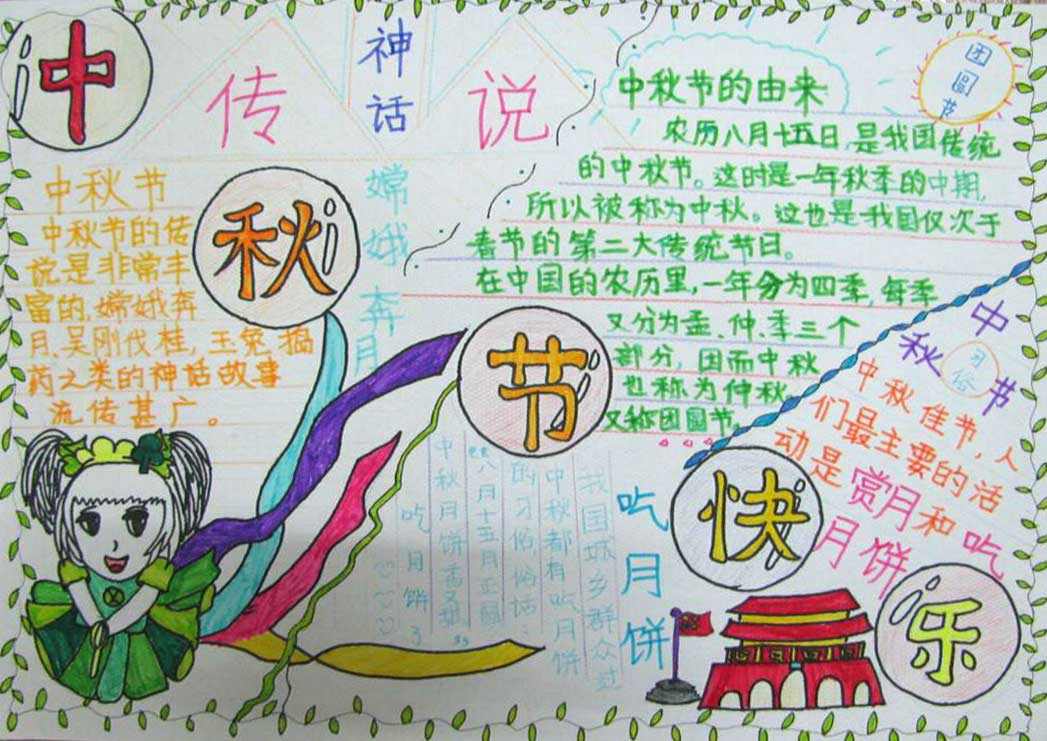 中
秋
节
快
乐
神话
传说
嫦娥奔月
中秋节
中秋节的传
说是非常丰
富的,嫦娥奔
月、吴刚伐桂,玉兔捣
药之类的神话故事
流传甚广。
团圆节
中秋节的由来
农历八月十五日,是我国传统
的中秋节。这时是一年秋季的中期,
所以被称为中秋。这也是我国仅次于
春节的第二大传统节日。
在中国的农历里,一年分为四季,每季
又分为孟、仲、季三个
部分,因而中秋
也称为仲秋,
又称团圆节。
中秋节
习俗
中秋佳节,人
们最主要的活
动是赏月和吃
月饼
吃月饼
我国城乡群众过
中秋都有吃月饼
的习俗俗话:
八月十五月正圆
中秋月饼香又甜
吃月饼了